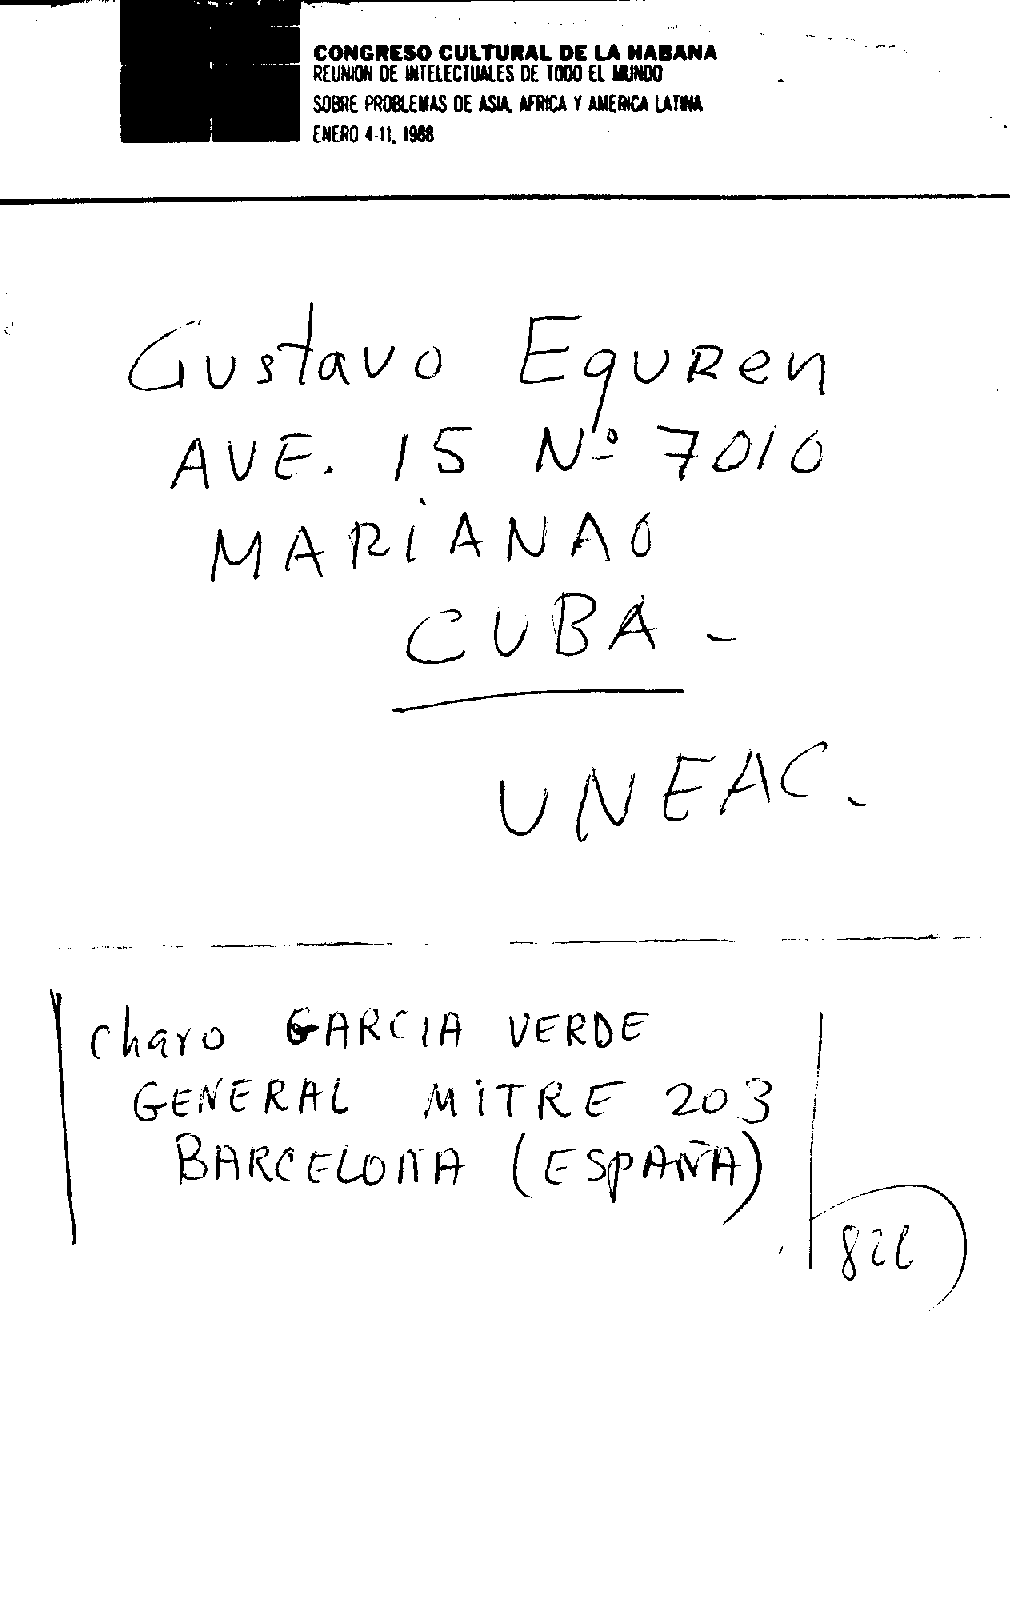 CONGRESO CULTURAL DE LA HABANA
REUNION DE INTELECTUALES DE TODO EL MUNDO
SOBRE PROBLEMAS DE ASIA, AFRICA Y AMERICA LATINA
ENERO 4-11, 1968
Gustavo Eguren
AVE. 15 Nº 7010
MARIANAO
CUBA -
UNEAC.
Charo GARCIA VERDE
GENERAL MITRE 203
BARCELONA (ESPAÑA)